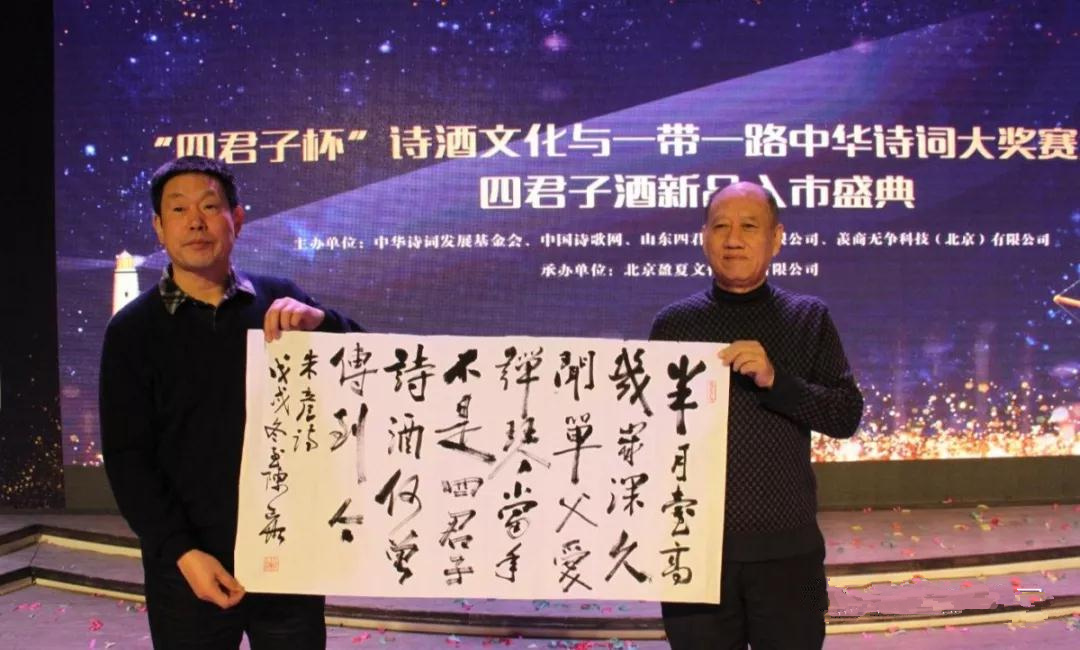 “四君子杯”诗酒文化与一带一路中华诗词大奖赛
四君子酒新品入市盛典
主办单位：中华诗词发展基金会、中国诗歌网、山东四君 限公司、羡商无争科技（北京）有限公司
承办单位：北京盈夏文 有限公司
半月臺高
幾嵗深久
聞單父愛
彈琴當年
不是四君子
詩酒何曾
傳到今
朱彦诗
戊戌冬